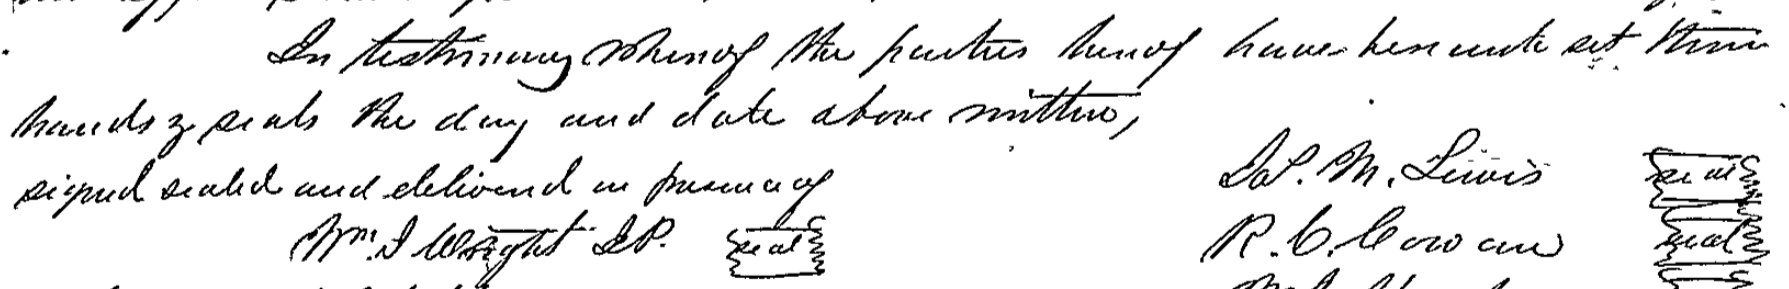 In testimony whereof the parties hereof have hereunto set their
hands & seals the day and date above written,
signed sealed and delivered in presence of
M. Lewis seal
Wm. J Wright J.P. seal
R. C. Cowan seal